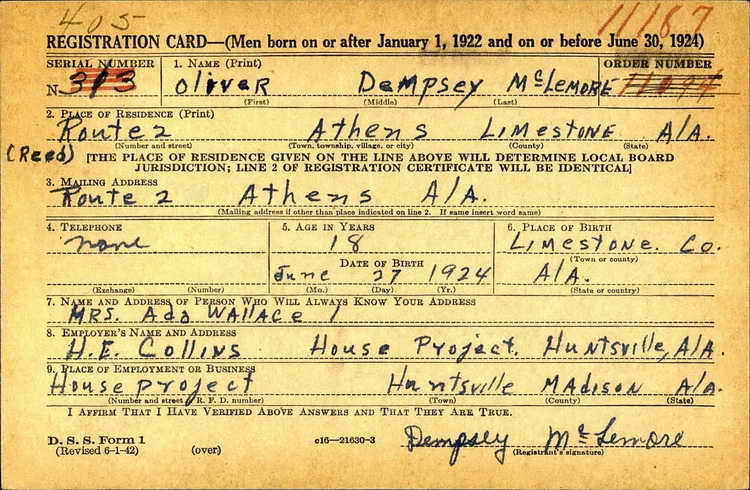 405
11187
REGISTRATION CARD—(Men born on or after January 1, 1922 and on or before June 30, 1924)
SERIAL NUMBER
1. NAME (Print)
ORDER NUMBER
N 313
Oliver Dempsey McLemore
11094
(First) (Middle) (Last)
2. PLACE OF RESIDENCE (Print)
Route 2 Athens Limestone Ala.
(Number and street) (Town, township, village, or city) (County) (State)
(Reed)
[THE PLACE OF RESIDENCE GIVEN ON THE LINE ABOVE WILL DETERMINE LOCAL BOARD
JURISDICTION; LINE 2 OF REGISTRATION CERTIFICATE WILL BE IDENTICAL]
3. MAILING ADDRESS
Route 2 Athens Ala.
(Mailing address if other than place indicated on line 2. If same insert word same)
4. TELEPHONE
5. AGE IN YEARS
6. PLACE OF BIRTH
none
18
Limestone. Co.
(Town or county)
DATE OF BIRTH
June 27 1924
Ala.
(Exchange) (Number)
(Mo.) (Day) (Yr.)
(State or country)
7. NAME AND ADDRESS OF PERSON WHO WILL ALWAYS KNOW YOUR ADDRESS
Mrs. Ada Wallace
8. EMPLOYER'S NAME AND ADDRESS
H.E. Collins House Project. Huntsville, Ala.
9. PLACE OF EMPLOYMENT OR BUSINESS
House project Huntsville Madison Ala.
(Number and street R. F. D. number) (Town) (County) (State)
I AFFIRM THAT I HAVE VERIFIED ABOVE ANSWERS AND THAT THEY ARE TRUE.
D. S. S. Form 1
(Revised 6-1-42) (over)
c16—21630-3
Dempsey McLemore
(Registrant's signature)